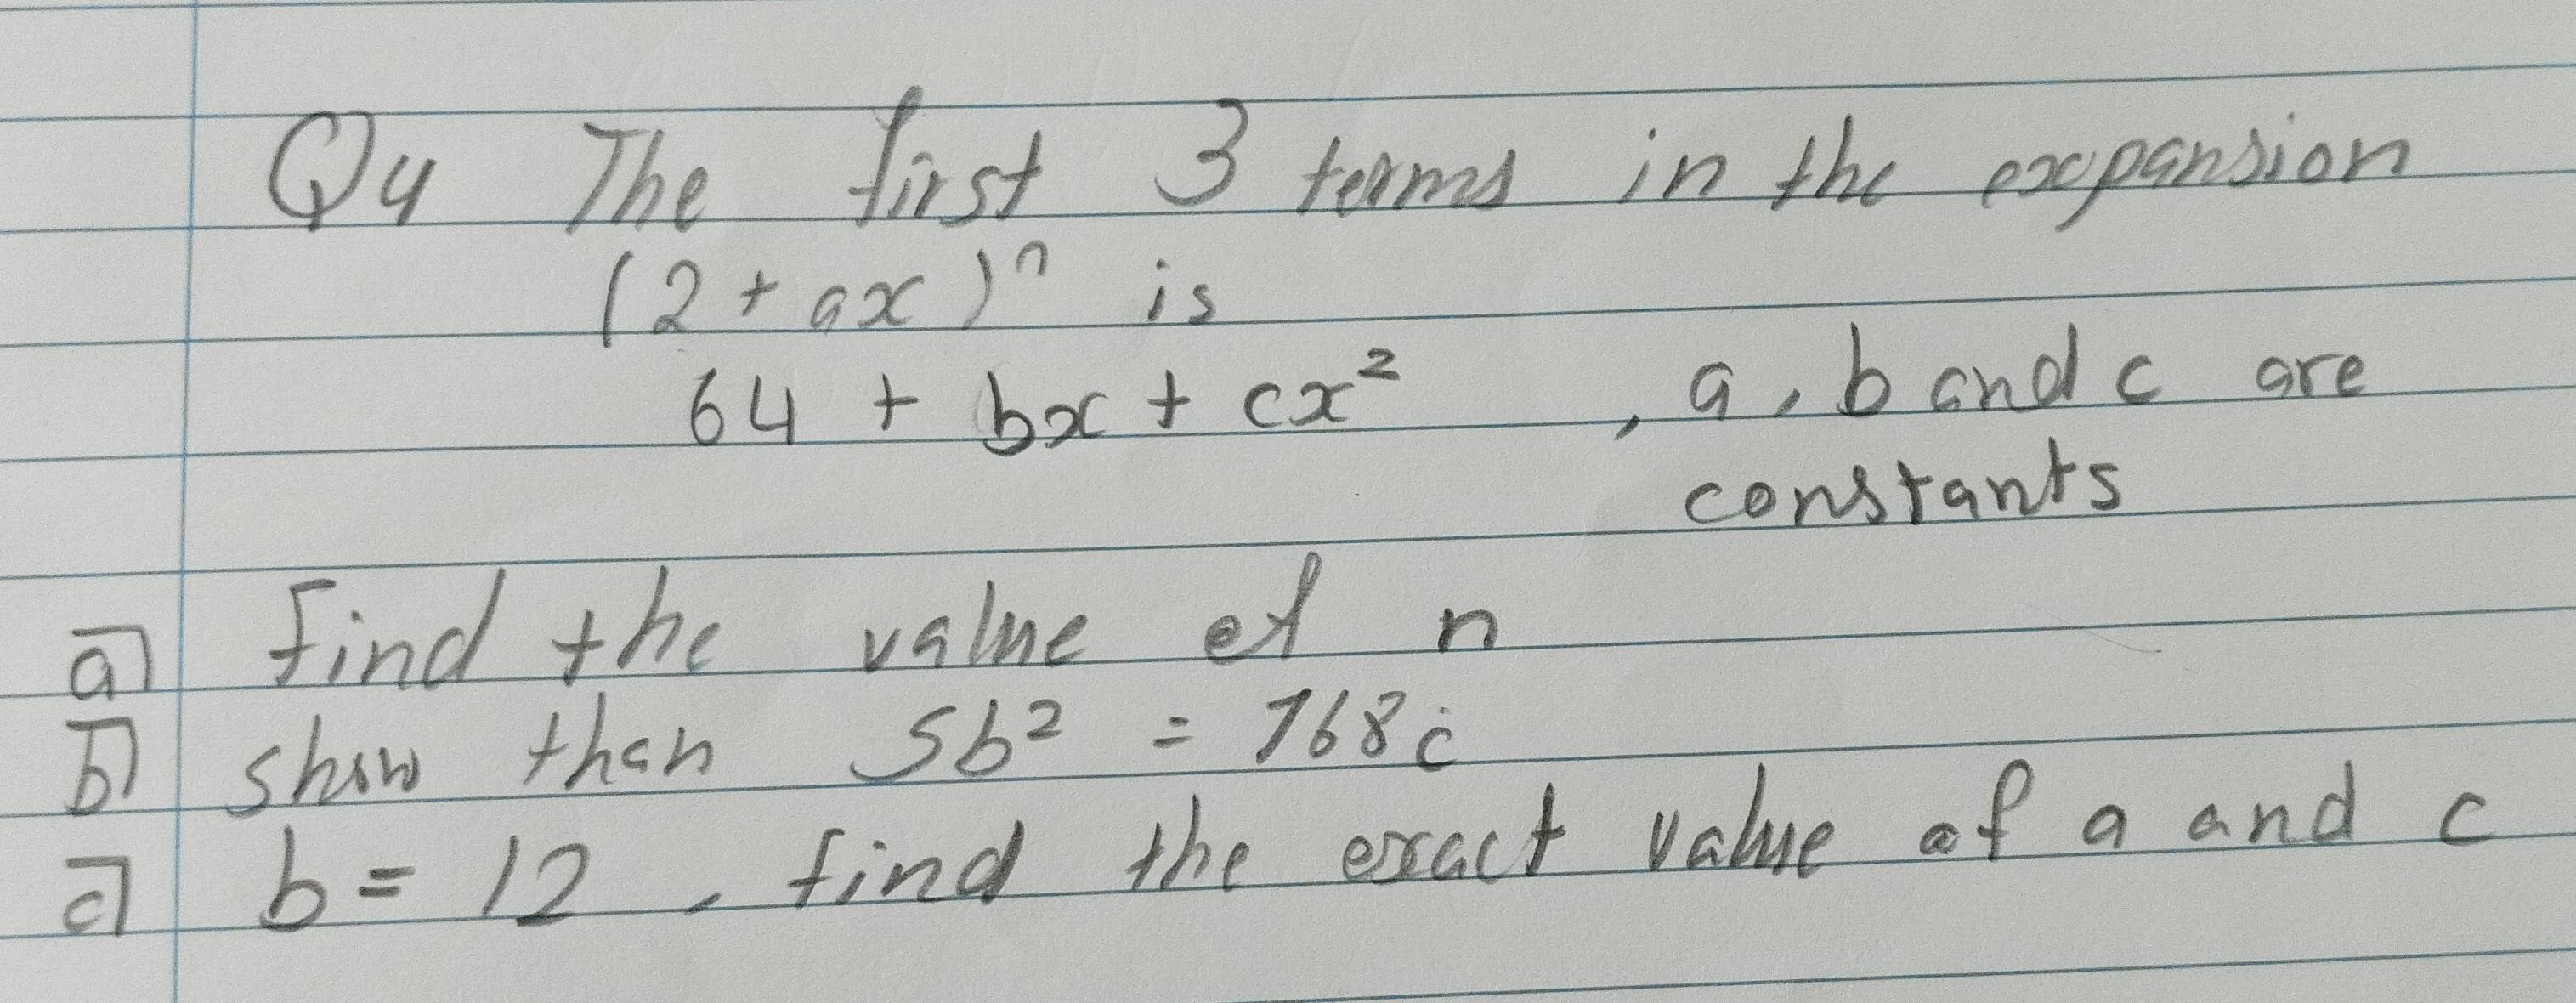 Q4 The first 3 terms in the expansion
(2 + ax)ⁿ is
64 + bx + cx² , a, b and c are
constants
a) find the value of n
b) show than 5b² = 768c
c) b = 12, find the exact value of a and c